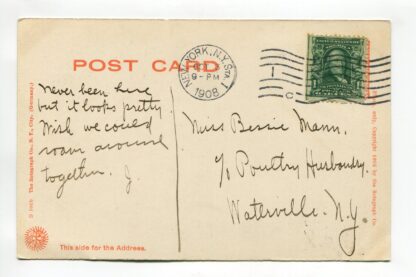 POST CARD
NEW YORK, N.Y. STA. 1
9-PM
1908
1
C
Never been here
but it looks pretty
Wish we could
roam around
together. J.
Miss Bessie Mann.
c/o Poultry Husbandry.
Waterville. N.Y.
The Rotograph Co., N. Y. City. (Germany.)
This side for the Address.